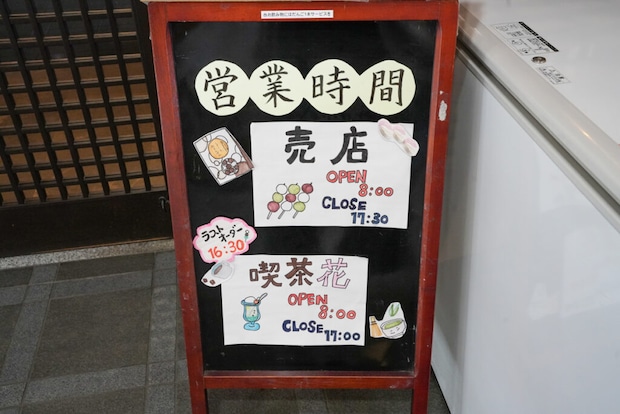 営業時間
売店
OPEN
8:00
CLOSE
17:30
ラスト
オーダー
16:30
喫茶花
OPEN
8:00
CLOSE
17:00